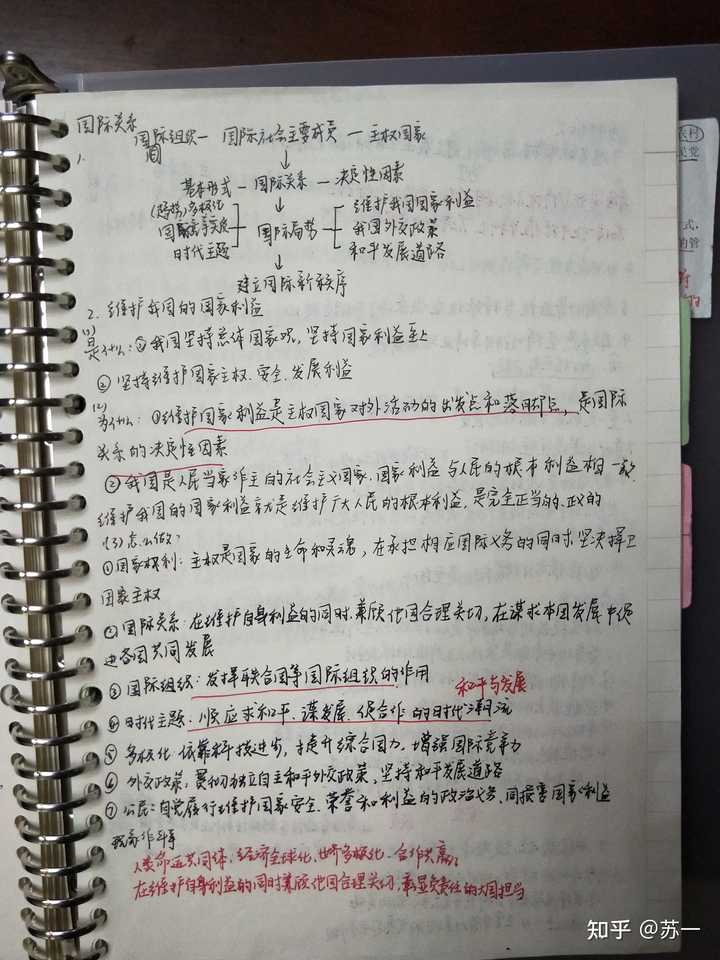 国际关系
1. 国际组织一 国际社会主要成员 一 主权国家
↓
基本形式 一 国际关系 一 决定性因素
(趋势)多极化 ↓ 维护我国国家利益
国家竞争实质 国际局势 我国外交政策
时代主题 和平发展道路
↓
建立国际新秩序
2. 维护我国的国家利益
(1)
是什么: ①我国坚持总体国家观, 坚持国家利益至上
② 坚持维护国家主权、安全、发展利益
(2)
为什么: ①维护国家利益是主权国家对外活动的出发点和落脚点, 是国际
关系的决定性因素
②我国是人民当家作主的社会主义国家, 国家利益与人民的根本利益相一致
维护我国的国家利益就是维护广大人民的根本利益, 是完全正当的、正义的
(3)怎么做?
①国家权利: 主权是国家的生命和灵魂, 在承担相应国际义务的同时, 坚决捍卫
国家主权
②国际关系: 在维护自身利益的同时, 兼顾他国合理关切, 在谋求本国发展中促
进各国共同发展
③国际组织: 发挥联合国等国际组织的作用
和平与发展
④时代主题: 顺应求和平、谋发展、促合作的时代潮流
⑤ 多极化: 依靠科技进步, 提升综合国力, 增强国际竞争力
⑥ 外交政策: 贯彻独立自主和平外交政策、坚持和平发展道路
⑦ 公民: 自觉履行维护国家安全、荣誉和利益的政治义务, 同损害国家利益
现象作斗争
人类命运共同体, 经济全球化, 世界多极化, 合作共赢;
在维护自身利益的同时兼顾他国合理关切, 彰显负责任的大国担当
知乎 @苏一